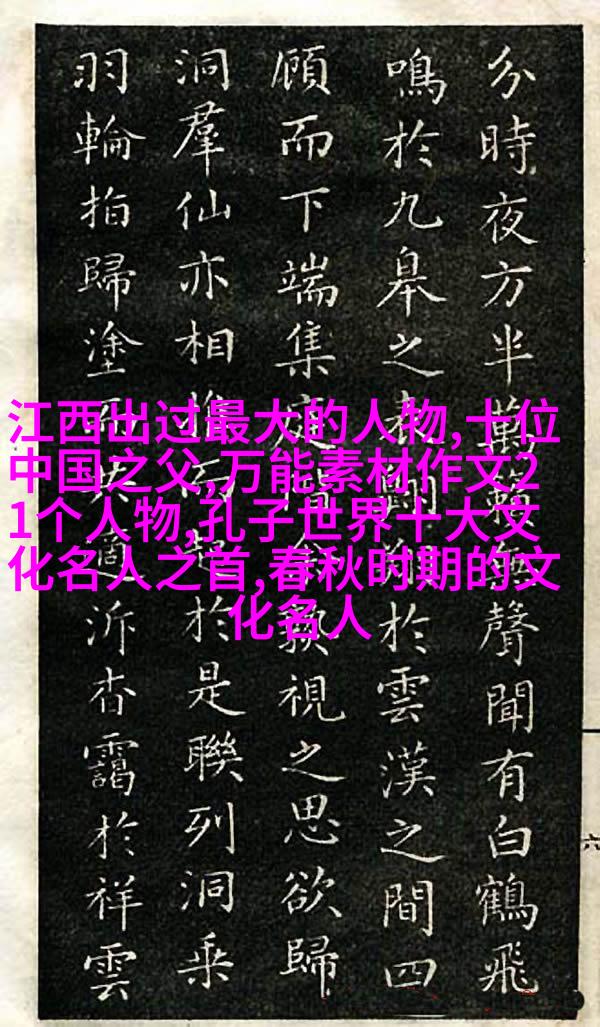 分時夜方半萬籟無聲聞有白鶴飛
鳴於九皋之於雲漢之間四
顧而下端集視之思欲歸
洞羣仙亦相於是聯列洞乘
羽輪拍歸塗泝杳靄於祥雲
六
江西出过最大的人物,十位
中国之父,万能素材作文2
1个人物,孔子世界十大文
化名人之首,春秋时期的文
化名人